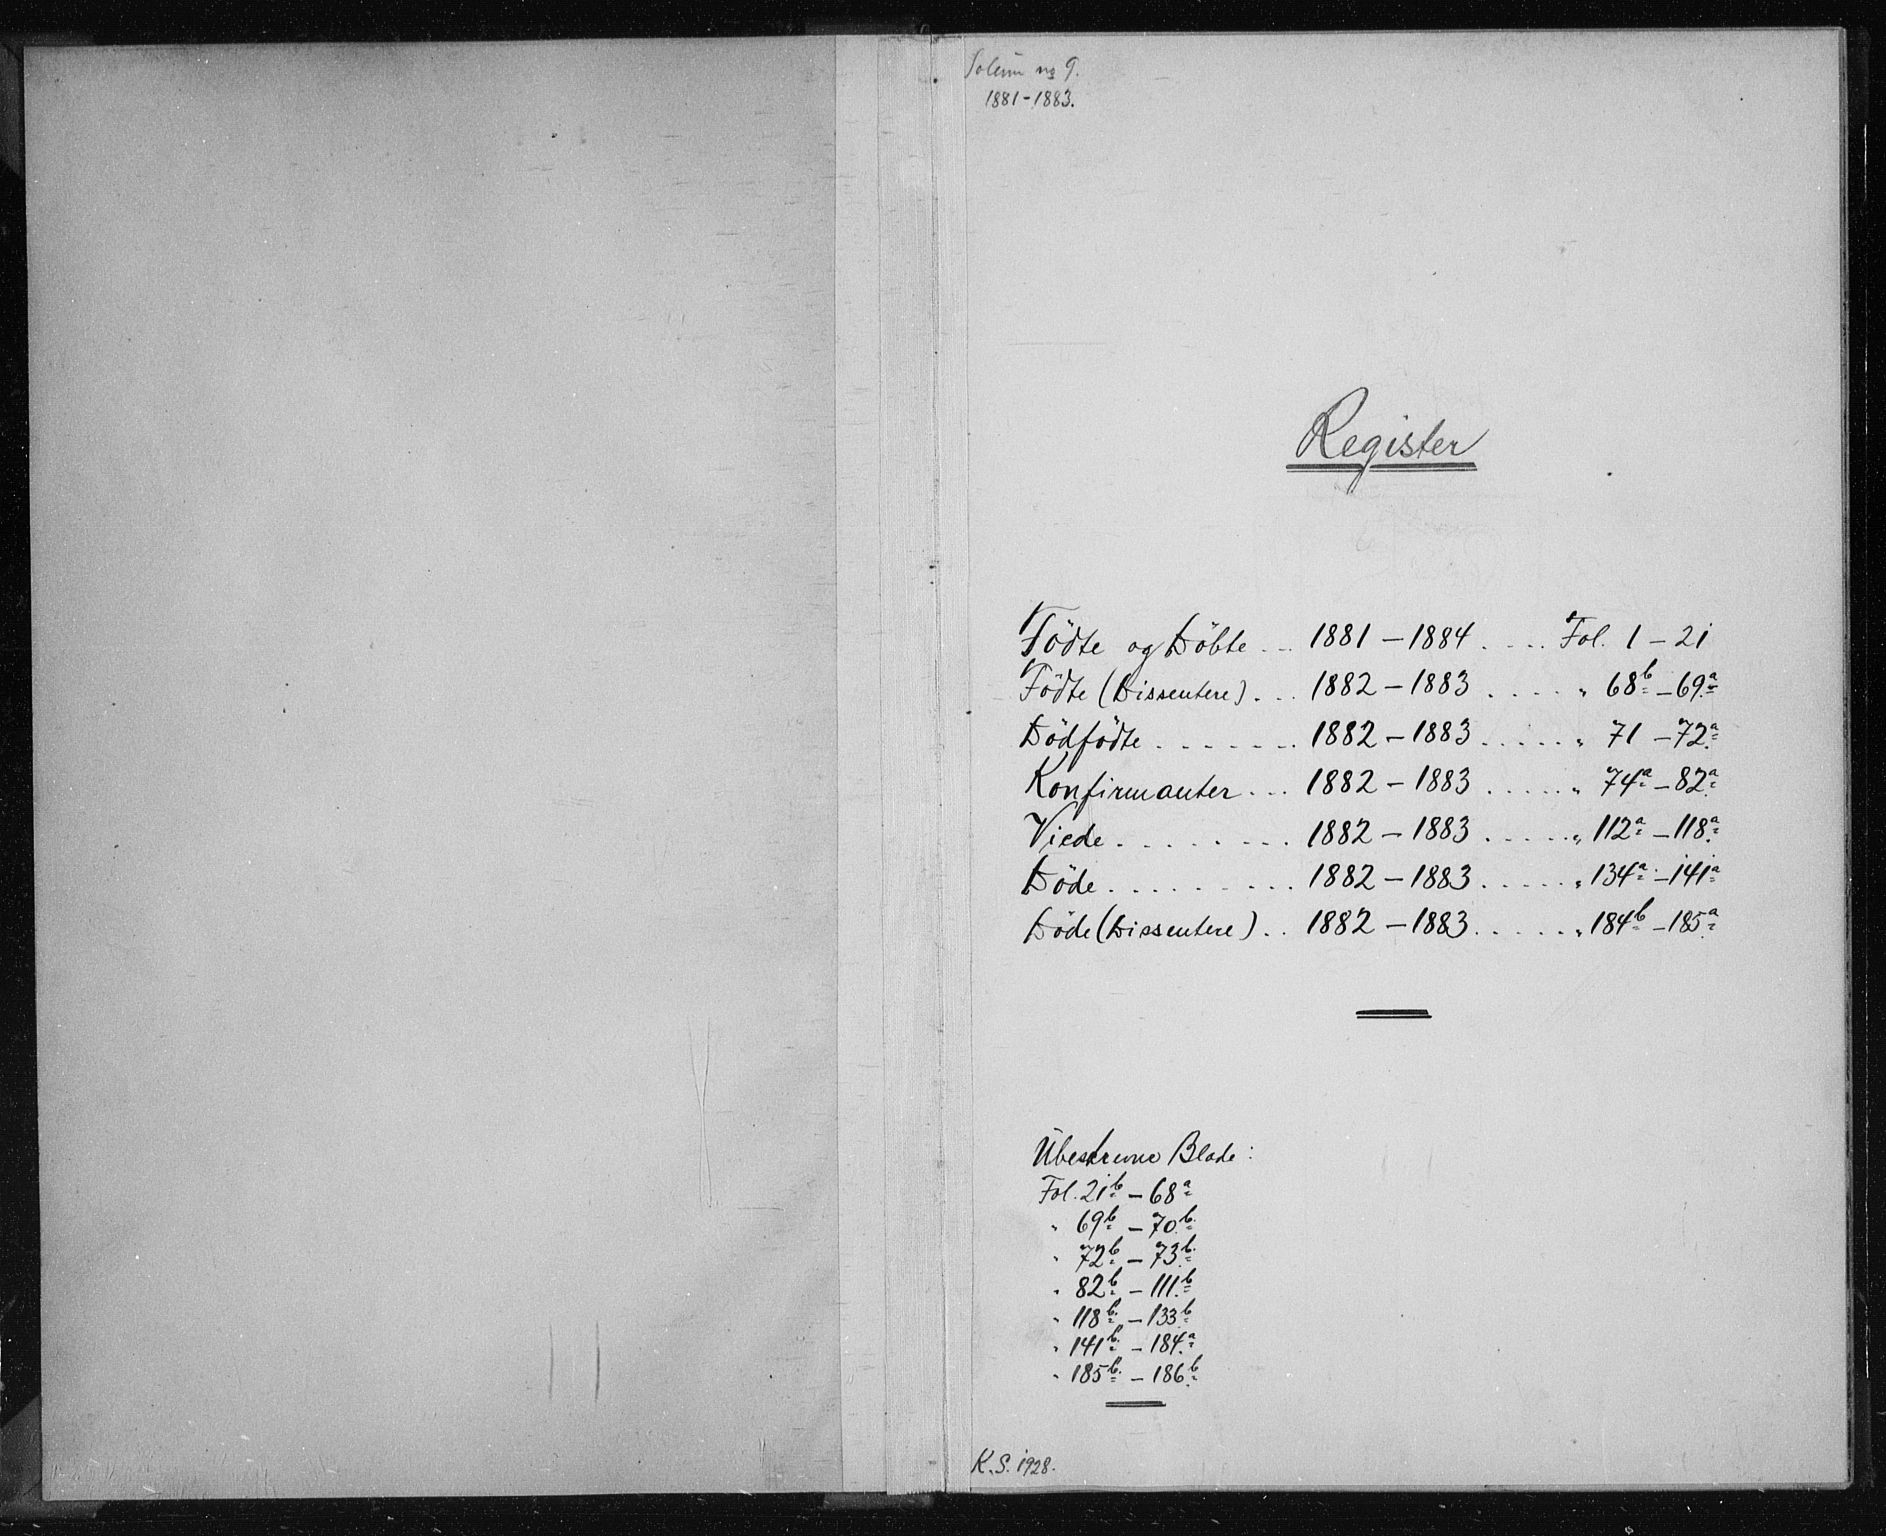 Solum no 9.
1881-1883.
Register
Födte og Döbte ... 1881 - 1884 .... Fol. 1 - 21
Födte (Dissentere) ... 1882 - 1883 ..... " 68b - 69a
Dödfödte ....... 1882 - 1883 ..... " 71 - 72a
Konfirmanter ... 1882 - 1883 ..... " 74a - 82a
Viede ........ 1882 - 1883 ..... " 112a - 118a
Döde ......... 1882 - 1883 ..... " 134a - 141a
Döde (Dissentere) .. 1882 - 1883 ..... " 184b - 185a
Ubeskrevne Blade:
Fol. 21b - 68a
" 69b - 70b
" 72b - 73b
" 82b - 111b
" 118b - 133b
" 141b - 184a
" 185b - 186b
K.S. 1928.